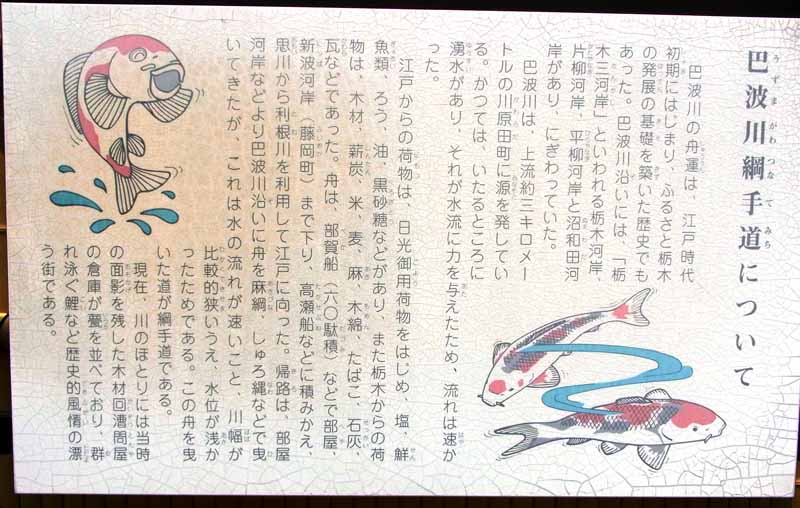 巴波川綱手道について
うずまがわつなてみち
巴波川の舟運は、江戸時代
初期にはじまり、ふるさと栃木
の発展の基礎を築いた歴史でも
あった。巴波川沿いには、「栃
木三河岸」といわれる栃木河岸、
片柳河岸、平柳河岸と沼和田河
岸があり、にぎわっていた。
巴波川は、上流約三キロメー
トルの川原田町に源を発してい
る。かつては、いたるところに
湧水があり、それが水流に力を与えたため、流れは速か
った。
江戸からの荷物は、日光御用荷物をはじめ、塩、鮮
魚類、ろう、油、黒砂糖などがあり、また栃木からの荷
物は、木材、薪炭、米、麦、麻、木綿、たばこ、石灰、
瓦などであった。舟は、部賀船（六〇駄積）などで部屋、
新波河岸（藤岡町）まで下り、高瀬船などに積みかえ、
思川から利根川を利用して江戸に向った。帰路は、部屋
河岸などより巴波川沿いに舟を麻綱、しゅろ縄などで曳
いてきたが、これは水の流れが速いこと、川幅が
比較的狭いうえ、水位が浅か
ったためである。この舟を曳
いた道が綱手道である。
現在、川のほとりには当時
の面影を残した木材回漕問屋
の倉庫が甍を並べており、群
れ泳ぐ鯉など歴史的風情の漂
う街である。